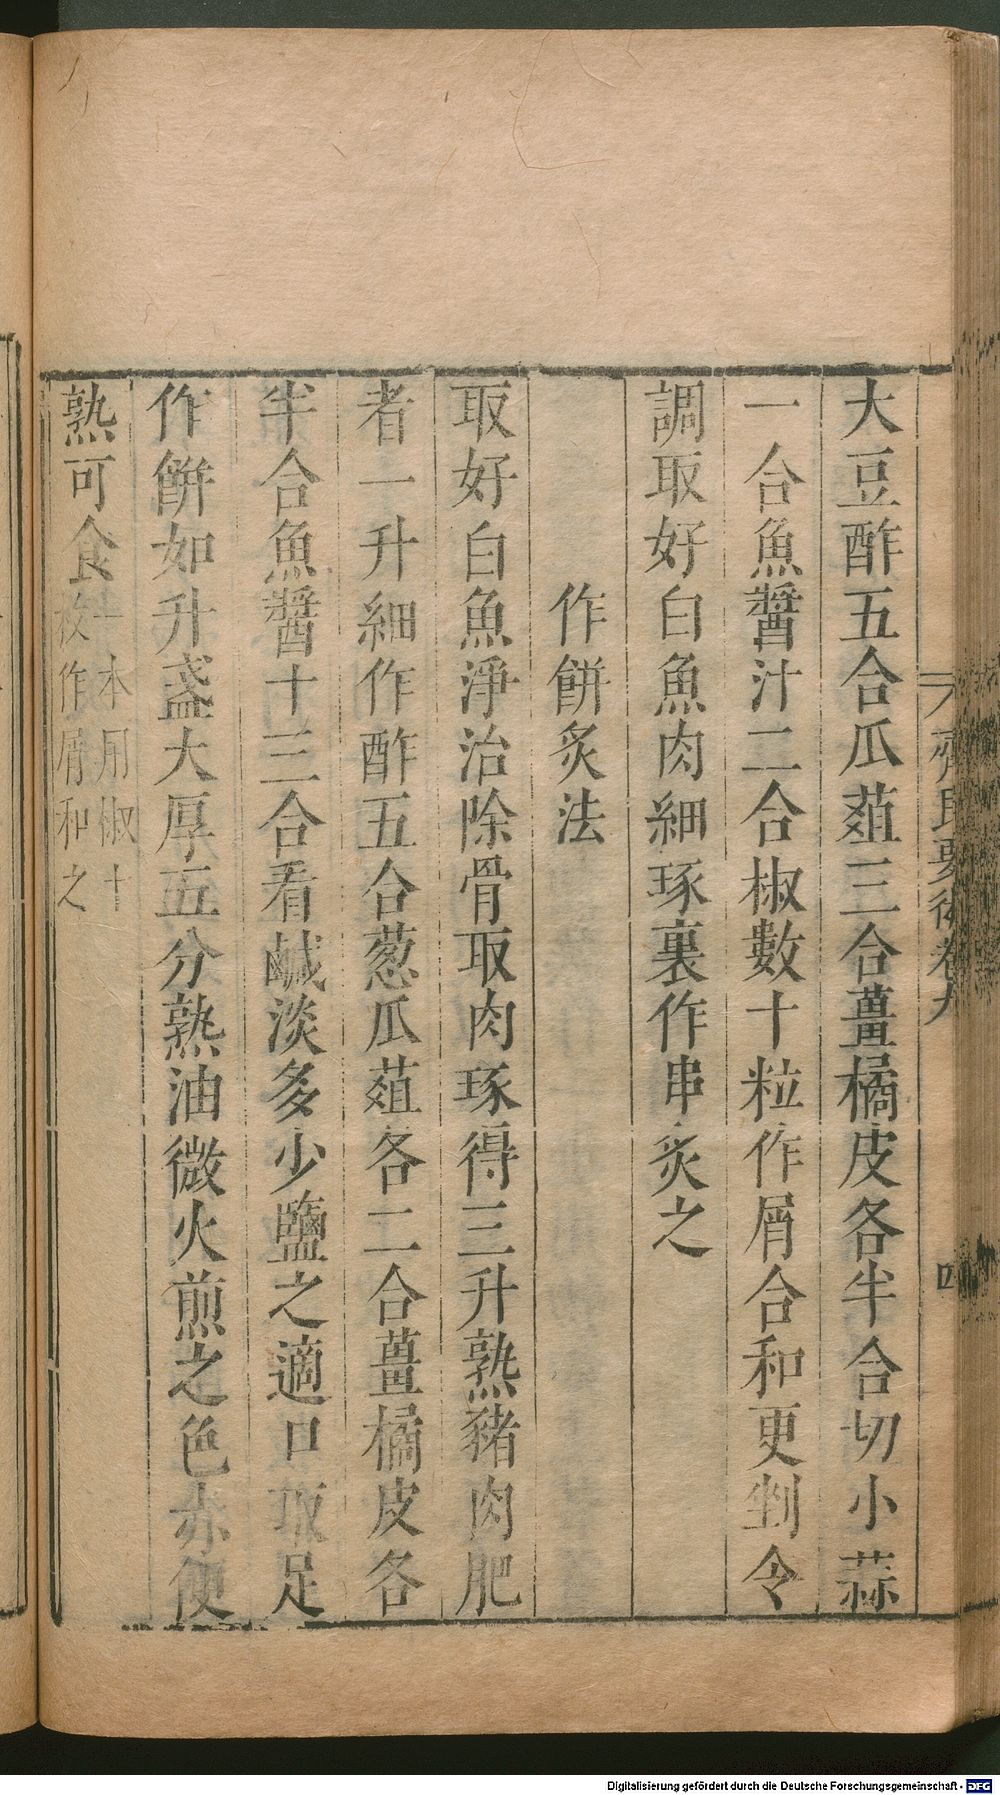 大豆酢五合瓜葅三合薑橘皮各半合切小蒜
一合魚醬汁二合椒數十粒作屑合和更剉令
調取好白魚肉細琢裹作串炙之
作餅炙法
取好白魚淨治除骨取肉琢得三升熟豬肉肥
者一升細作酢五合葱瓜葅各二合薑橘皮各
半合魚醬十三合看鹹淡多少鹽之適口取足
作餅如升盞大厚五分熟油微火煎之色赤便
熟可食
一本用椒十
枚作屑和之
齊民要術卷九
四
Digitalisierung gefördert durch die Deutsche Forschungsgemeinschaft - DFG